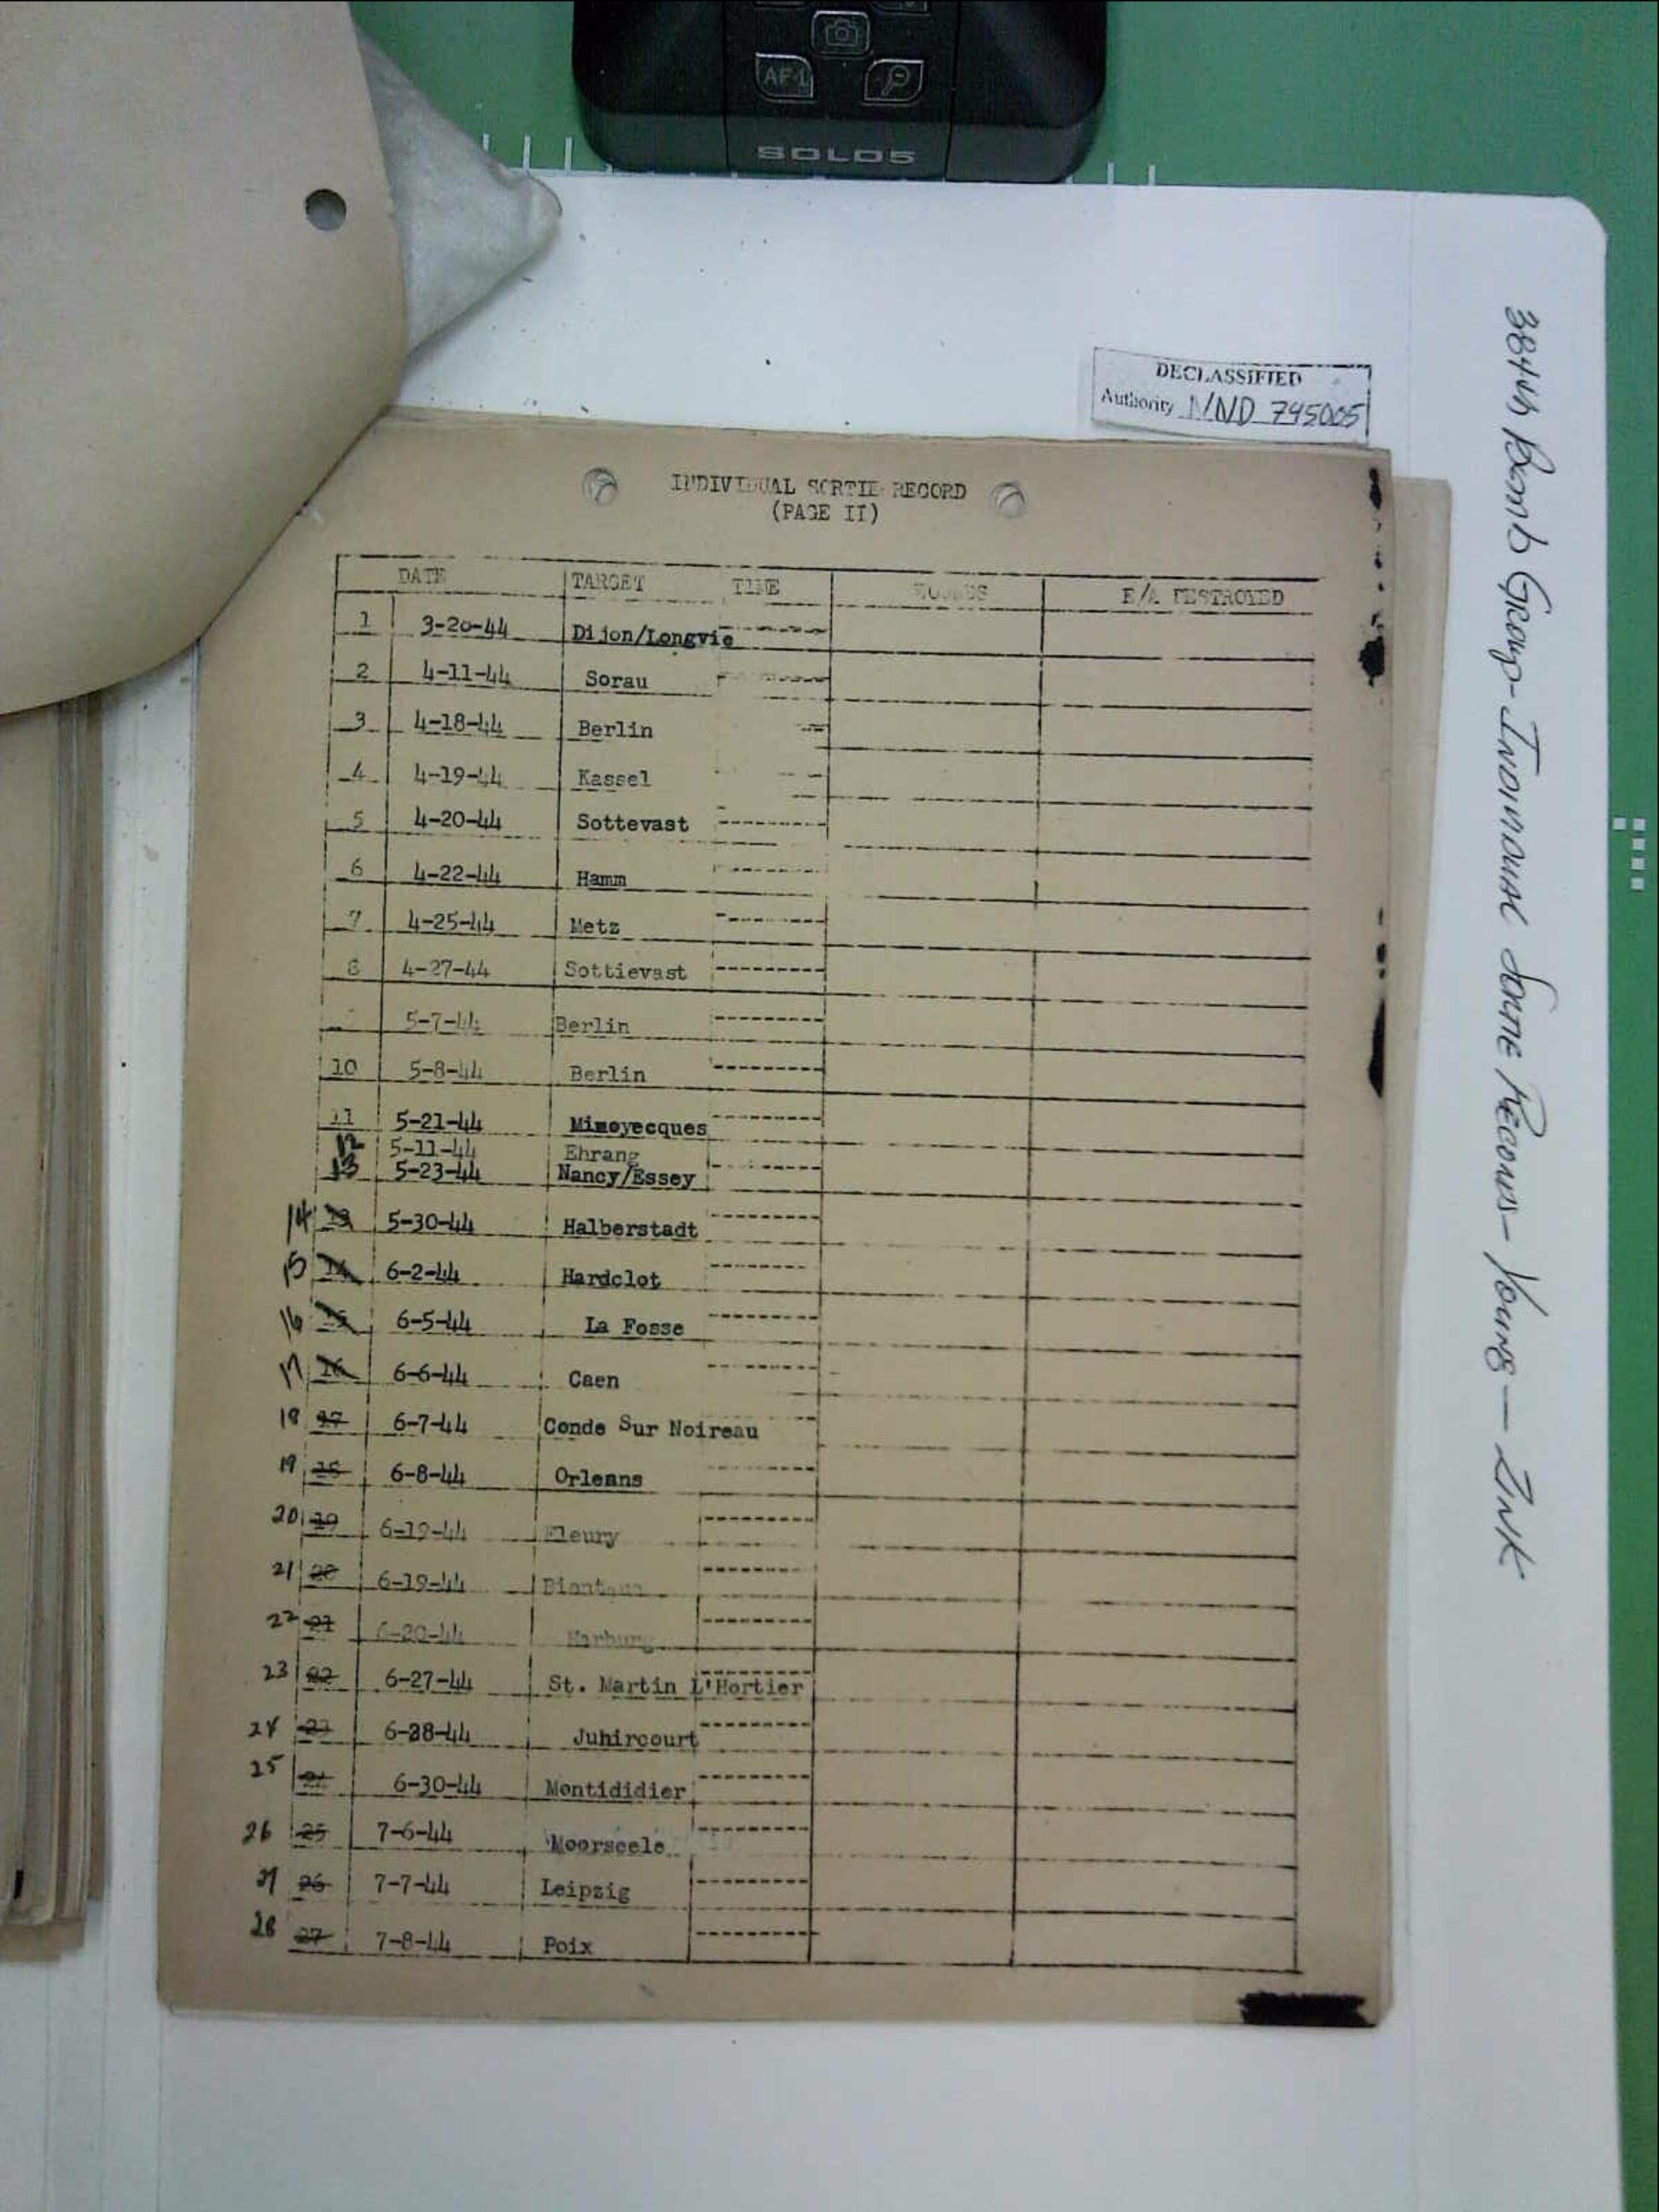 AF-L
SOLO5
DECLASSIFIED
Authority NND 745005
384th Bomb Group - Individual Sortie Records - Young — Zink
INDIVIDUAL SORTIE RECORD
(PAGE II)
DATE TARGET TIME WOUNDS E/A DESTROYED
1 3-20-44 Dijon/Longvie
2 4-11-44 Sorau
3 4-18-44 Berlin
4 4-19-44 Kassel
5 4-20-44 Sottevast
6 4-22-44 Hamm
7 4-25-44 Metz
8 4-27-44 Sottievast
5-7-44 Berlin
10 5-8-44 Berlin
11 5-21-44 Mimoyecques
12 5-11-44 Ehrang
13 5-23-44 Nancy/Essey
14 13 5-30-44 Halberstadt
15 14 6-2-44 Hardclot
16 15 6-5-44 La Fosse
17 16 6-6-44 Caen
18 17 6-7-44 Conde Sur Noireau
19 18 6-8-44 Orleans
20 19 6-19-44 Fleury
21 20 6-19-44
22 21 6-20-44
23 22 6-27-44 St. Martin L'Hortier
24 23 6-28-44 Juhircourt
25 24 6-30-44 Montididier
26 25 7-6-44 Moorseele
27 26 7-7-44 Leipzig
28 27 7-8-44 Poix